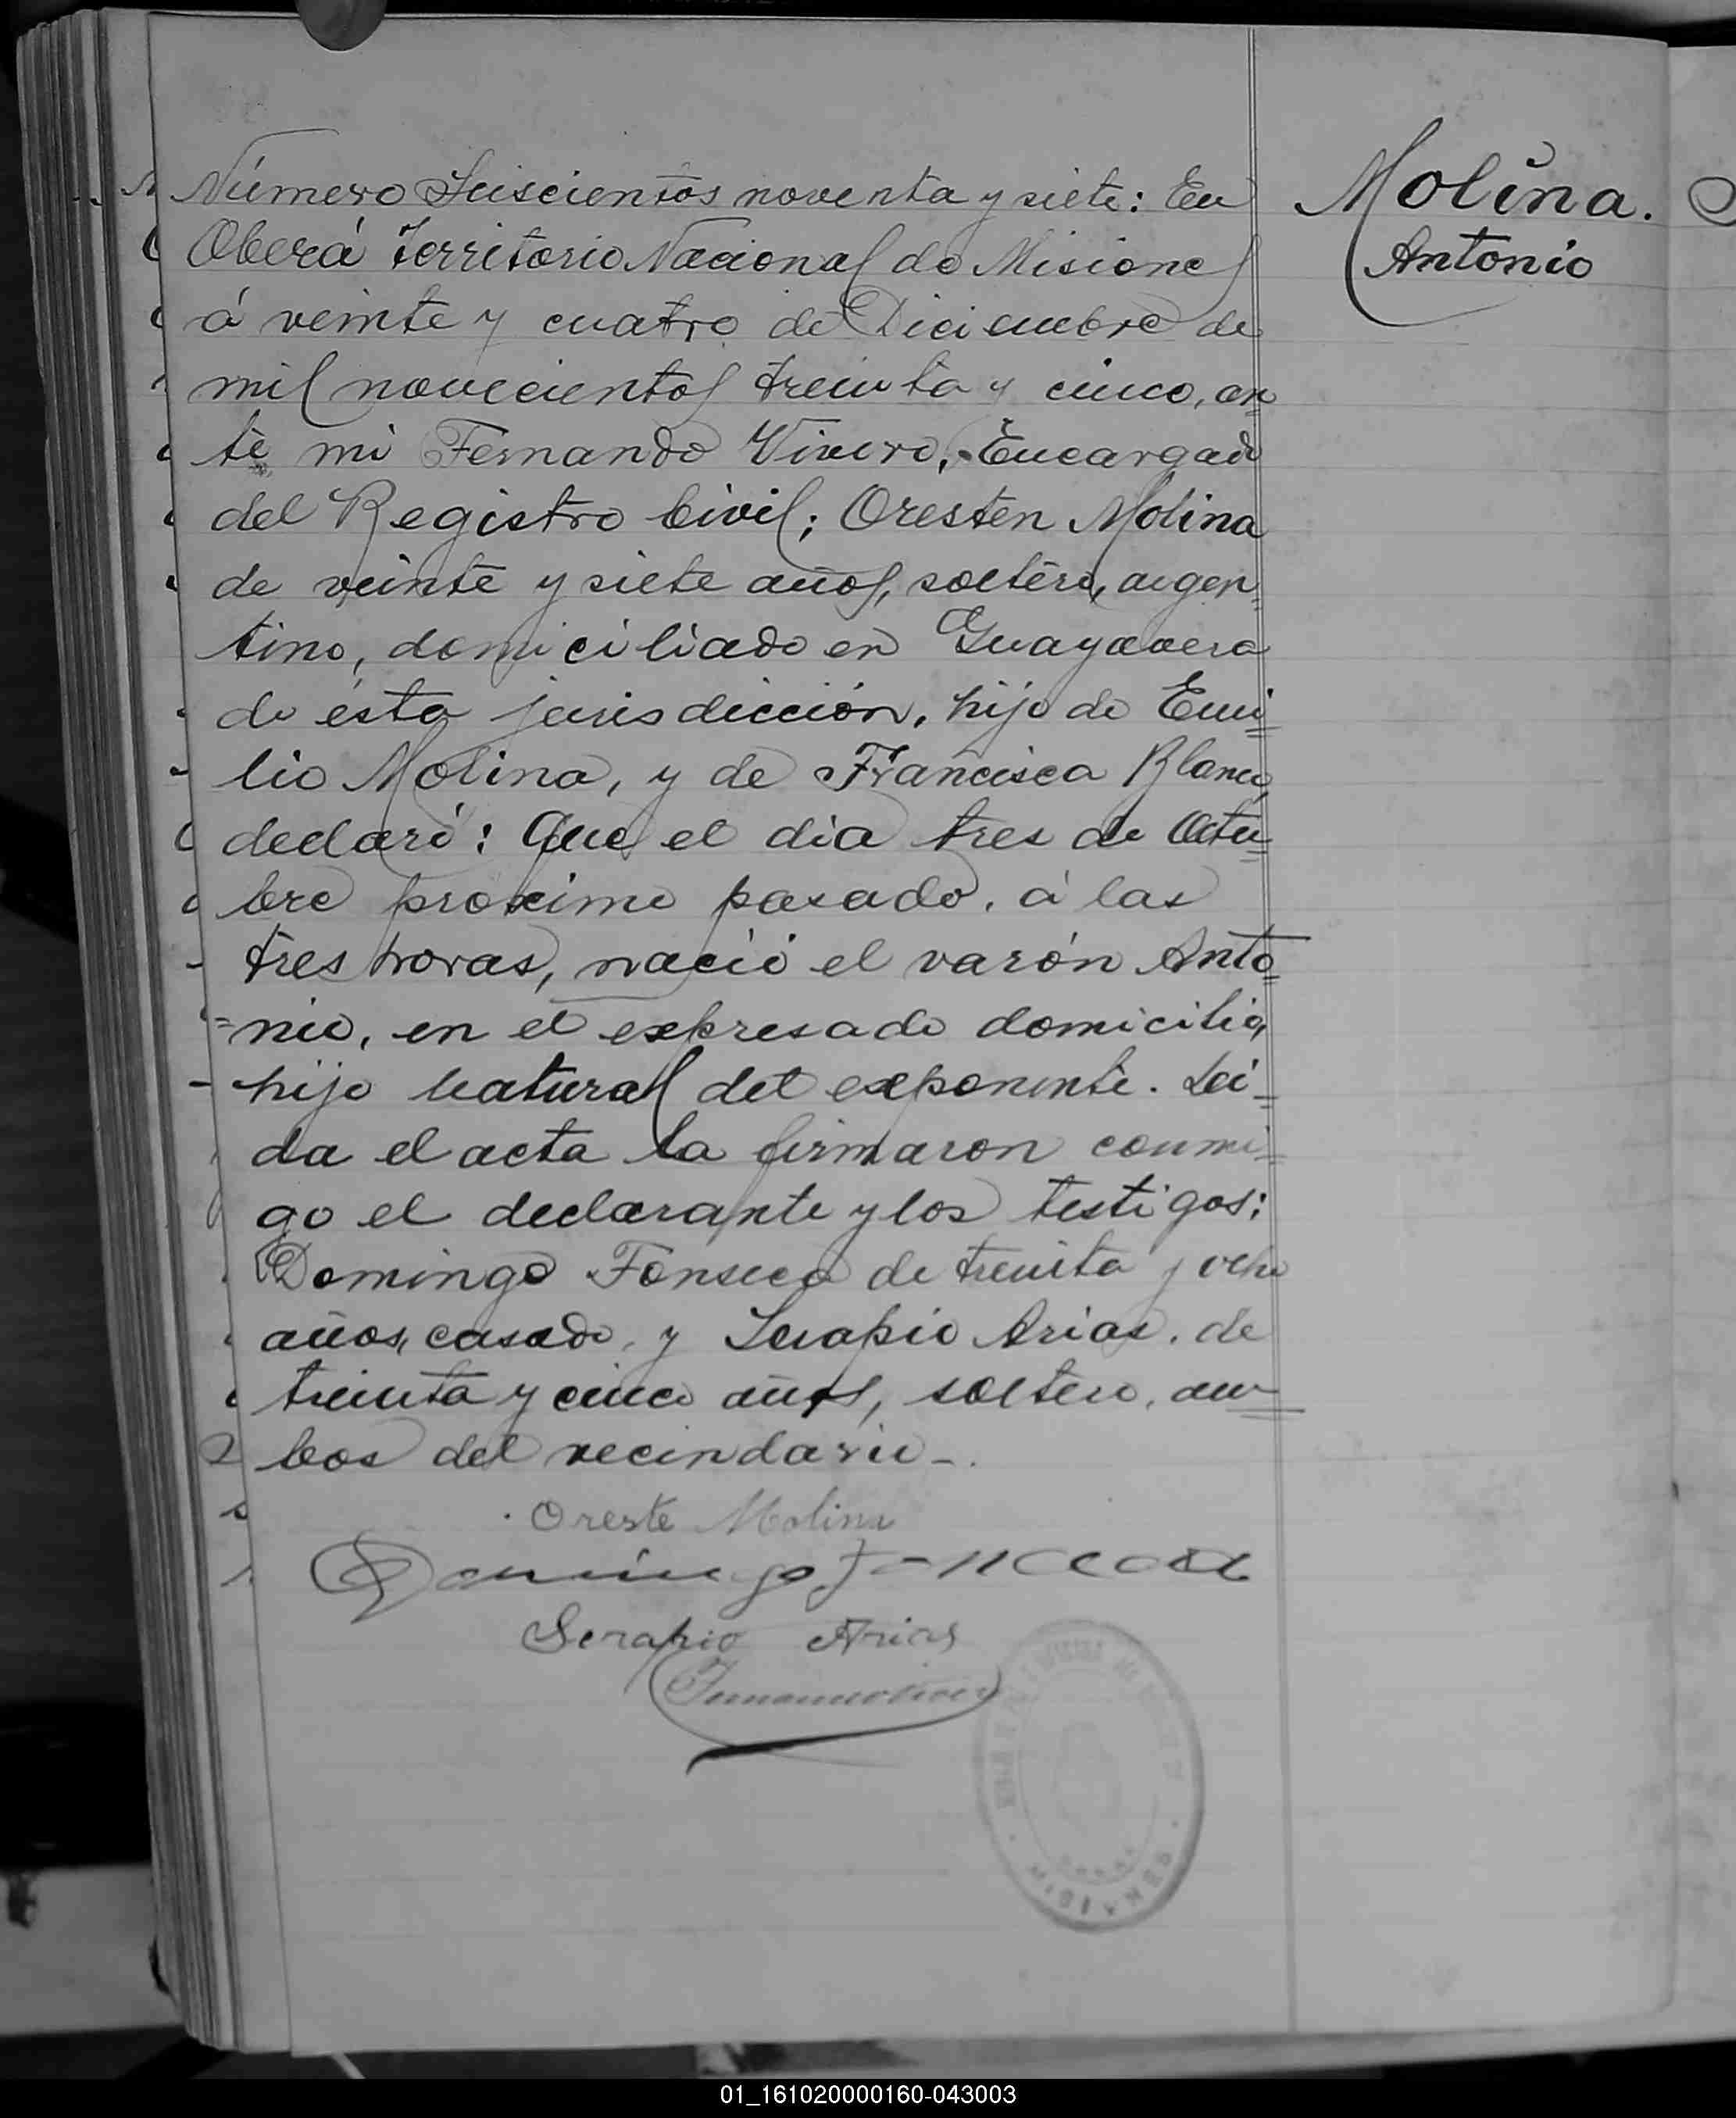 Número Seiscientos noventa y siete: En
Oberá Territorio Nacional de Misiones
á veinte y cuatro de Diciembre de
mil novecientos treinta y cinco, an
te mi Fernando Vivero, Encargado
del Registro Civil; Oresten Molina
de veinte y siete años, soltero, argen
tino, domiciliado en Guayavera
de ésta jurisdicción, hijo de Emi
lio Molina, y de Francisca Blanco,
declaró: Que el dia tres de Octu
bre próximo pasado, á las
tres horas, nació el varón Anto
nio, en el expresado domicilio,
hijo natural del exponente. Lei
da el acta la firmaron conmi
go el declarante y los testigos:
Domingo Fonseca de treinta y ocho
años, casado, y Serapio Arias, de
treinta y cinco años, soltero, am
bos del vecindario.
Oreste Molina
Domingo Fonceca
Serapio Arias
Fernando Vivero
MISIONES
Molina.
Antonio
01_161020000160-043003